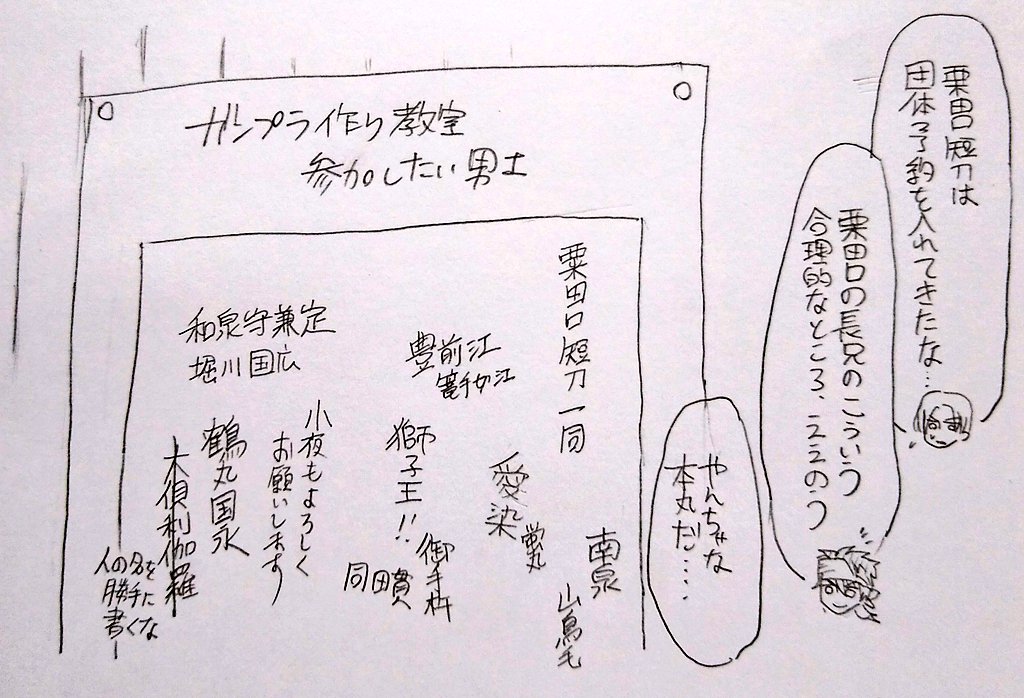 ガンプラ作り教室
参加したい男士
粟田口短刀一同
豊前江
篭手切江
和泉守兼定
堀川国広
南泉
山鳥毛
愛染
蛍丸
獅子王!!
御手杵
同田貫
小夜もよろしく
お願いします
鶴丸国永
大倶利伽羅
人の名を
勝手に
書くな
粟田口短刀は
団体予約を入れてきたな…
粟田口の長兄のこういう
合理的なところ、ええのう
やんちゃな
本丸だ……